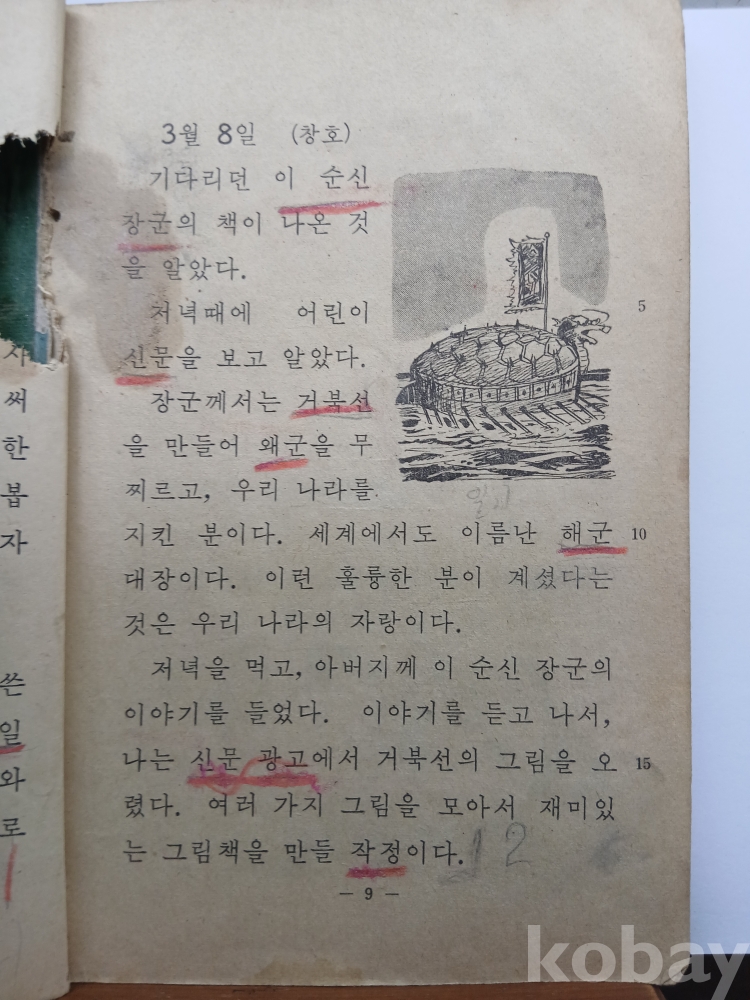 3월 8일 (창호)
기다리던 이 순신
장군의 책이 나온 것
을 알았다.
저녁때에 어린이
신문을 보고 알았다.
장군께서는 거북선
을 만들어 왜군을 무
찌르고, 우리 나라를
지킨 분이다. 세계에서도 이름난 해군
대장이다. 이런 훌륭한 분이 계셨다는
것은 우리 나라의 자랑이다.
저녁을 먹고, 아버지께 이 순신 장군의
이야기를 들었다. 이야기를 듣고 나서,
나는 신문 광고에서 거북선의 그림을 오
렸다. 여러 가지 그림을 모아서 재미있
는 그림책을 만들 작정이다.
12
— 9 —
5
10
15
써
한
봅
자
쓴
일
와
로
kobay